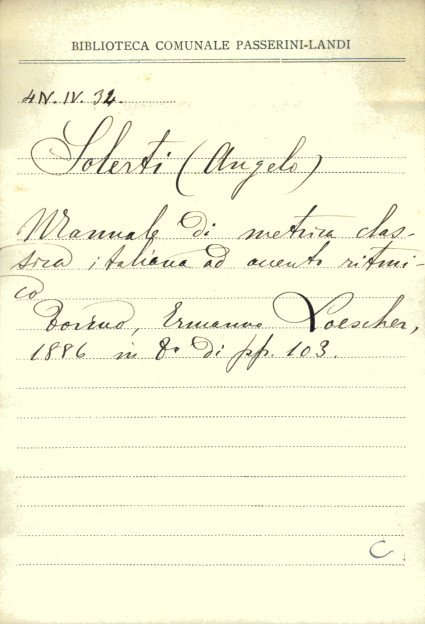 BIBLIOTECA COMUNALE PASSERINI-LANDI
4N.IV.32.
Solerti (Angelo)
Manuale di metrica clas-
sica italiana ad accento ritmi-
co
Torino, Ermanno Loescher,
1886 in 8° di pp. 103.
C.